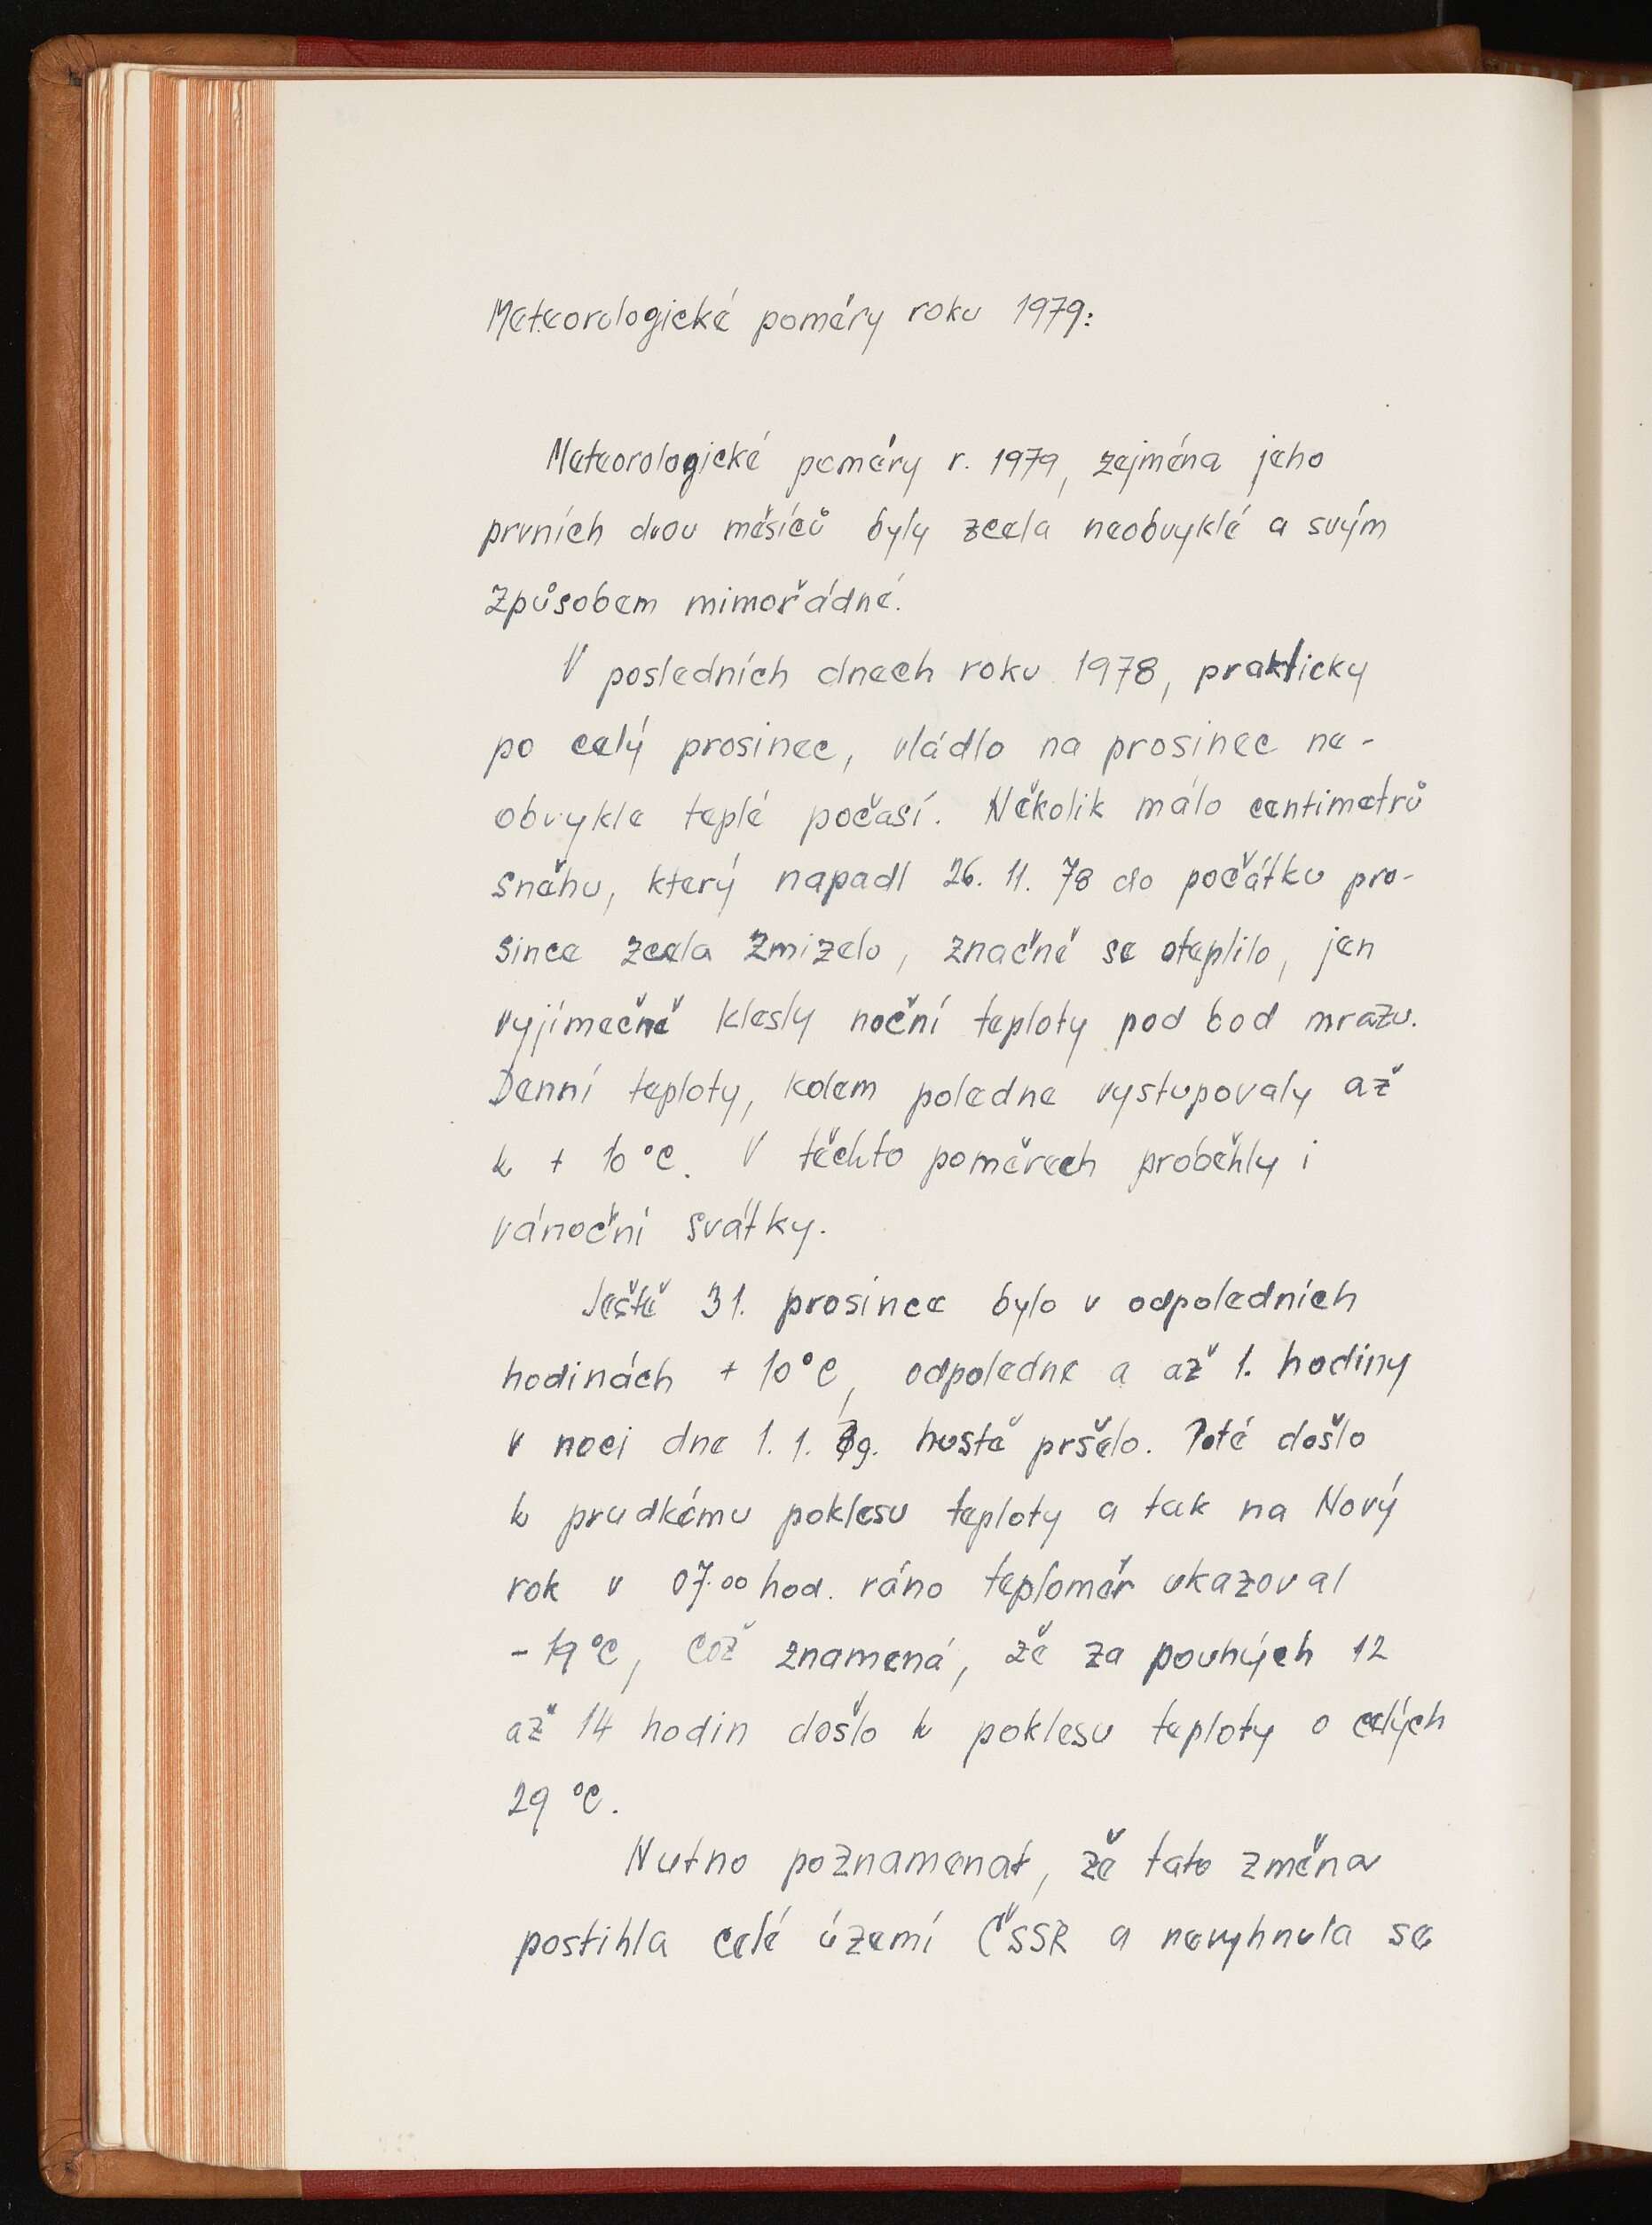 Meteorologické poměry roku 1979:
Meteorologické poměry r. 1979, zejména jeho
prvních dvou měsíců byly zcela neobvyklé a svým
způsobem mimořádné.
V posledních dnech roku 1978, prakticky
po celý prosinec, vládlo na prosinec ne-
obvykle teplé počasí. Několik málo centimetrů
sněhu, který napadl 26. 11. 78 do počátku pro-
since zcela zmizelo, značně se oteplilo, jen
vyjímečně klesly noční teploty pod bod mrazu.
Denní teploty, kolem poledne vystupovaly až
k + 10 °C. V těchto poměrech proběhly i
vánoční svátky.
Ještě 31. prosince bylo v odpoledních
hodinách + 10°C, odpoledne a až 1. hodiny
v noci dne 1. 1. 79. hustě pršelo. Poté došlo
k prudkému poklesu teploty a tak na Nový
rok v 07.00 hod. ráno teploměr ukazoval
- 19 °C, což znamená, že za pouhých 12
až 14 hodin došlo k poklesu teploty o celých
29 °C.
Nutno poznamenat, že tato změna
postihla celé území ČSSR a nevyhnula se